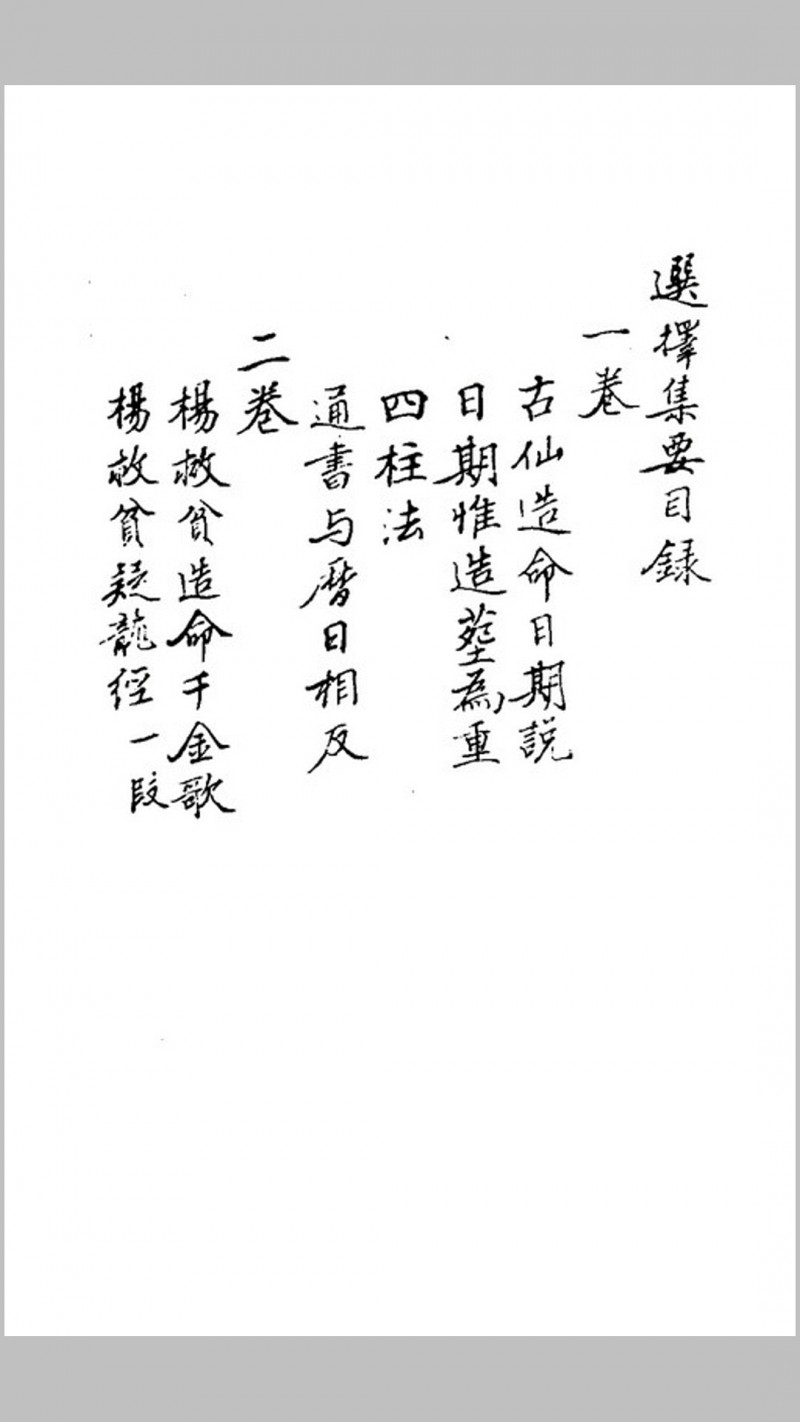 選擇集要目录
一卷
古仙造命日期説
日期惟造塟為重
四柱法
通書与曆日相反
二卷
楊救貧造命千金歌
楊救貧疑龍經一段